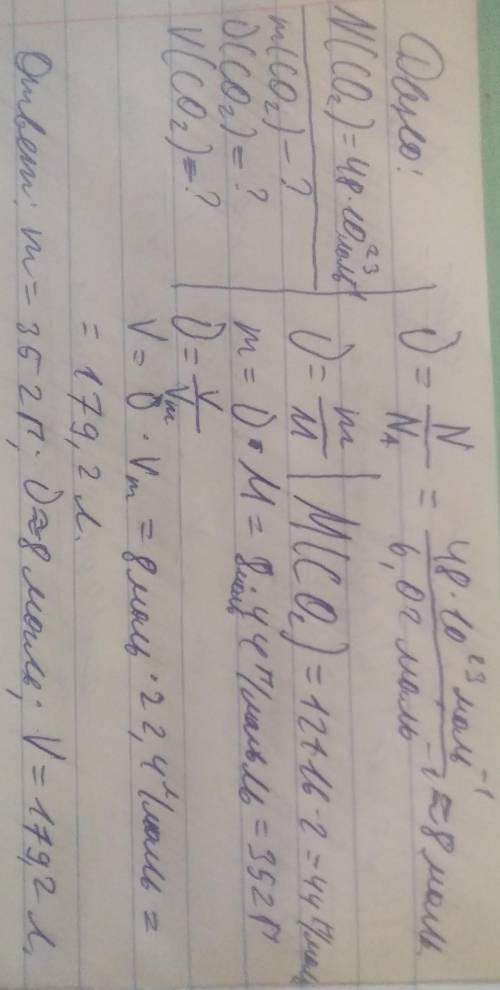 Дано:
N(CO₂)=48·10²³ моль⁻¹
m(CO₂)-?
ν(CO₂)=?
V(CO₂)=?
ν = N/Nₐ = 48·10²³ моль⁻¹/6,02 моль⁻¹ ≈ 8 моль
ν = m/M | M(CO₂) = 12+16·2 = 44 г/моль
m = ν·M = 8 моль·44 г/моль = 352 г
ν = V/Vₘ
V = ν·Vₘ = 8 моль·22,4 л/моль =
= 179,2 л.
Ответ: m = 352 г; ν≈8 моль; V = 179,2 л.